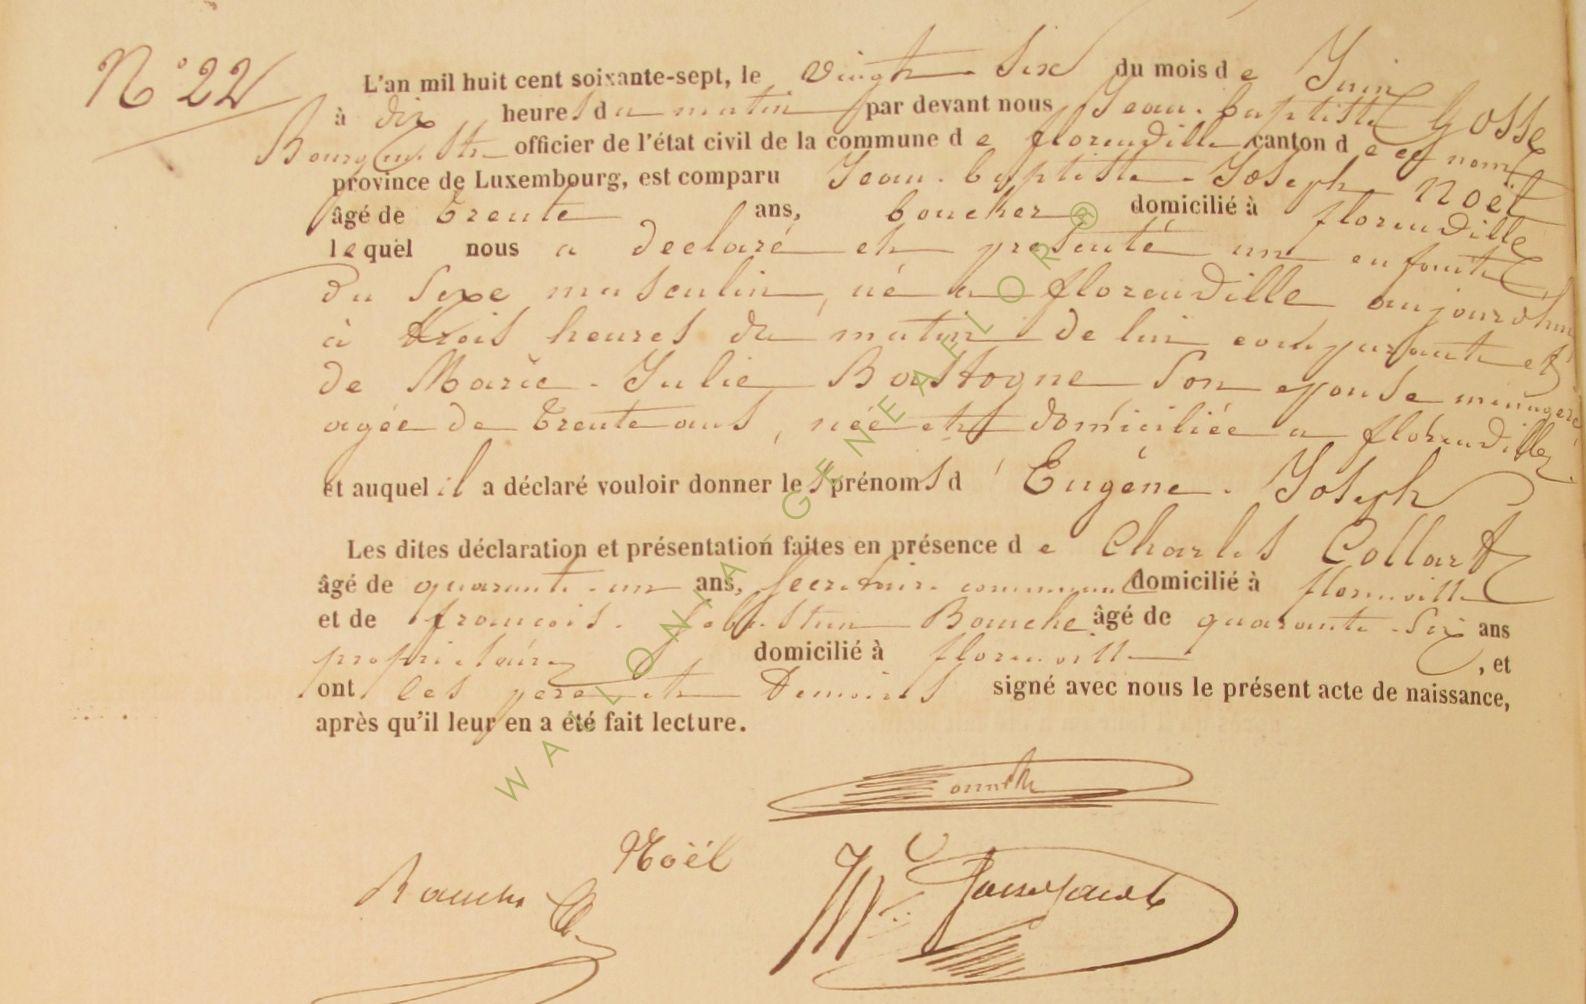 N° 22
L'an mil huit cent soixante-sept, le vingt-six du mois de Juin
à dix heures du matin par devant nous Jean-baptiste Gosse
Bourgmestre officier de l'état civil de la commune de florenville canton de ce nom
province de Luxembourg, est comparu Jean-baptiste-Joseph Noël
âgé de trente ans, boucher domicilié à florenville
lequel nous a declaré et presenté un enfant
du sexe masculin, né a florenville aujourdhui
à trois heures du matin de lui comparant et
de Marie-Julie Bastogne son epouse menagere
agée de trente ans, née et domiciliée a florenville
et auquel il a déclaré vouloir donner les prénoms d' Eugène-Joseph
Les dites déclaration et présentation faites en présence de Charles Collart
âgé de quarante-un ans, secretaire communal domicilié à florenville
et de francois-sebastien Bauche âgé de quarante-six ans
proprietaire domicilié à florenville, et
ont les pere et temoins signé avec nous le présent acte de naissance,
après qu'il leur en a été fait lecture.
Noël
WALLONIA GENEAFLORE